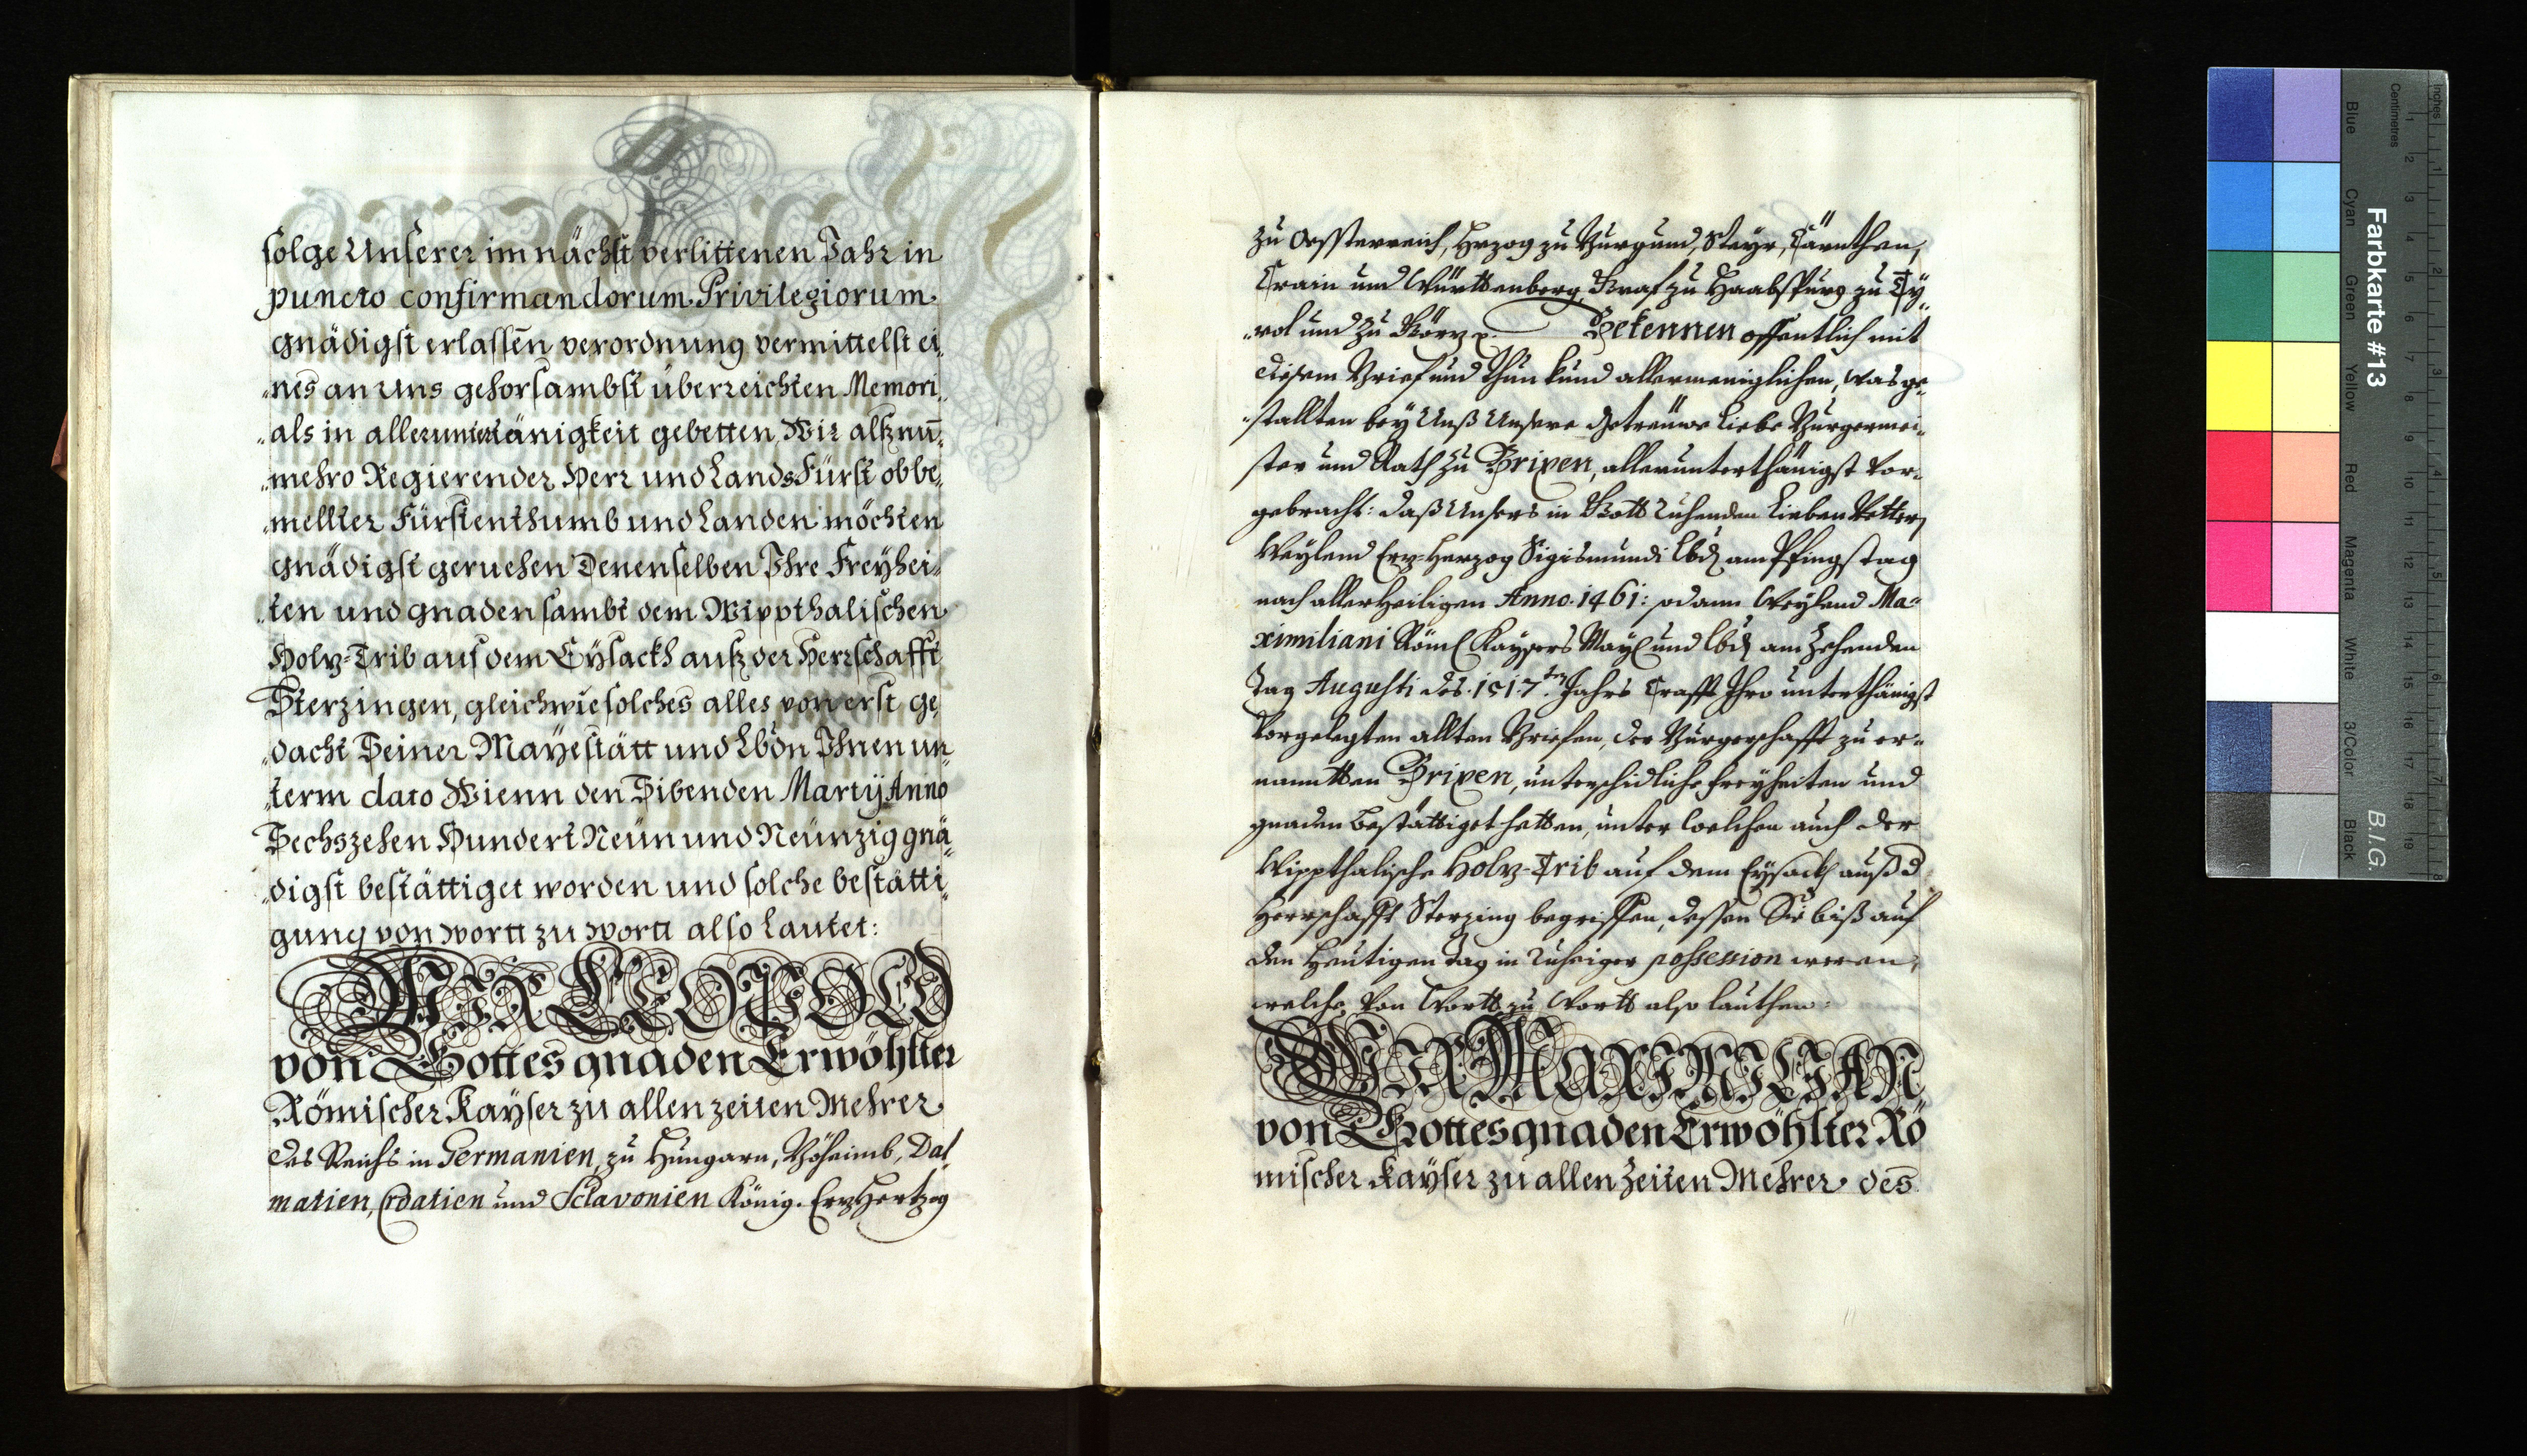 folge Unserer im nächst verlittenen Jahr in
puncto confirmandorum Privilegiorum
gnädigst erlassen verordnung vermittelst ei„
„nes an Uns gehorsambst überreichten Memori„
„als in allerunterthänigkeit gebetten, Wir alß nū„
„mehro Regierender Herr und LandsFürst obbe„
„mellter Fürstenthumb und Landen möchten
gnädigst geruehen Denenselben Ihre Freyhei„
„ten und gnaden sambt dem Wippthalischen
Holz-Trib auf dem Eysackh auß der Herrschafft
Sterzingen, gleichwie solches alles von erst ge„
„dacht Seiner Mayestätt und Lbdn Ihnen un„
„term dato Wienn den Sibenden Martij Anno
Sechszehen Hundert Neün und Neünzig gnä„
„digst bestättiget worden und solche bestätti„
gung von wortt zu wortt also Lautet:
WIR LEOPOLD
von Gottes gnaden Erwöhlter
Römischer Kayser zu allen zeiten Mehrer
des Reichs in Germanien, zu Hungarn, Böheimb, Dal„
matien, Croatien und Sclavonien König. ErzHertzog
zu Oessterreich, Herzog zu Burgund, Steyr, Cärnthen,
Crain und Württenberg, Graf zu Haabspurg zu Ty„
„rol und zu Görz p. Bekennen offentlich mit
diesem Brief und thun kund allermeniglichen, was ge„
„stallten bey Unß Unsere getreüwe Liebe Burgermei„
ster und Rath zu Brixen, allerunterthänigst vor„
gebracht: daß Unsers in Gott ruhenden Lieben Vetters
Weylend Erz-Herzog Sigismundi Lbd am Pfingstag
nach allerheiligen Anno. 1461: sodann Weylend Ma„
ximiliani Röm Kaysers May und Lbd am Zehenden
Tag Augusti des. 1517.ten Jahrs Crafft Ihro unterthänigst
Vorgelegten allten Briefen, der Burgerschafft zu er„
nanntten Brixen, unterschidliche freyheiten und
gnaden bestättiget hetten, unter welchen auch der
Wippthalische Holz-Trib auf dem Eysackh auß d
Herrschafft Sterzing begriffen, dessen Sie biß auf
den Heutigen Tag in ruhiger possession weren,
welche Von Wortt zu Wortt also lauthen:
WIR MAXIMILIAN
von Gottes gnaden Erwöhlter Rö
mischer Kayser zu allen Zeiten Mehrer des
Farbkarte #13
B.I.G.
Inches
Centimetres
Blue
Cyan
Green
Yellow
Red
Magenta
White
3/Color
Black
1 2 3 4 5 6 7 8 9 10 11 12 13 14 15 16 17 18 19
1 2 3 4 5 6 7 8